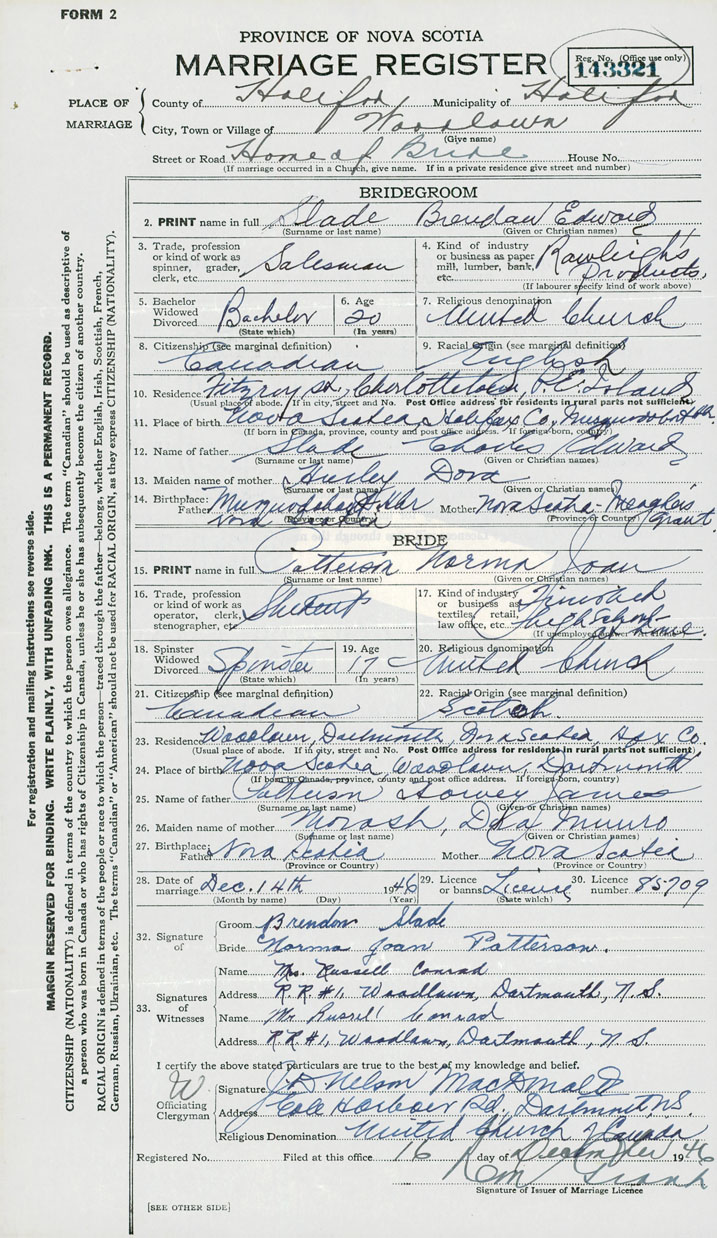 FORM 2
PROVINCE OF NOVA SCOTIA
MARRIAGE REGISTER
Reg. No. (Office use only)
143321
PLACE OF MARRIAGE
County of Halifax Municipality of Halifax
City, Town or Village of Woodlawn
(Give name)
Street or Road Home of Bride House No.
(If marriage occurred in a Church, give name. If in a private residence give street and number)
BRIDEGROOM
2. PRINT name in full Slade Brendan Edward
(Surname or last name) (Given or Christian names)
3. Trade, profession or kind of work as spinner, grader, clerk, etc. Salesman
4. Kind of industry or business as paper mill, lumber, bank, etc. Rawleigh's Products,
(If labourer specify kind of work above)
5. Bachelor Widowed Divorced Bachelor
(State which)
6. Age 20
(In years)
7. Religious denomination United Church
8. Citizenship (see marginal definition) Canadian
9. Racial Origin (see marginal definition) English
10. Residence Fitzroy St., Charlottetown, P.E. Island
(Usual place of abode. If in city, street and No. Post Office address for residents in rural parts not sufficient)
11. Place of birth Nova Scotia, Halifax Co., Musquodoboit Hbr.
(If born in Canada, province, county and post office address. If foreign born, country)
12. Name of father Slade Edward
(Surname or last name) (Given or Christian names)
13. Maiden name of mother Hurley Dora
(Surname or last name) (Given or Christian names)
14. Birthplace: Father Hbr Nova Scotia
Mother Nova Scotia - Meagher's Grant.
(Province or Country) (Province or Country)
BRIDE
15. PRINT name in full Patterson Norma Joan
(Surname or last name) (Given or Christian names)
16. Trade, profession or kind of work as operator, clerk, stenographer, etc. Student
17. Kind of industry or business as textiles, retail, law office, etc. Finished High School - at home.
(If unemployed
18. Spinster Widowed Divorced Spinster
(State which)
19. Age 17
(In years)
20. Religious denomination United Church
21. Citizenship (see marginal definition) Canadian
22. Racial Origin (see marginal definition) Scotch.
23. Residence Woodlawn, Dartmouth, Nova Scotia, Hfx Co.
(Usual place of abode. If in city, street and No. Post Office address for residents in rural parts not sufficient)
24. Place of birth Nova Scotia, Woodlawn, Dartmouth
(If born in Canada, province, county and post office address. If foreign-born, country)
25. Name of father Patterson Howe James
(Surname or last name) (Given or Christian names)
26. Maiden name of mother Morash, Munro
(Surname or last name) (Given or Christian names)
27. Birthplace: Father Nova Scotia Mother Nova Scotia
(Province or Country) (Province or Country)
28. Date of marriage Dec. 14th 1946
(Month by name) (Day) (Year)
29. Licence or banns License
(State which)
30. Licence number 85709
32. Signature of
Groom Brendon Slade
Bride Norma Joan Patterson.
33. Signatures of Witnesses
Name Mrs. Russell Conrad
Address R.R.#1, Woodlawn, Dartmouth, N.S.
Name Mr Russell Conrad
Address R.R#1, Woodlawn, Dartmouth, N.S.
I certify the above stated particulars are to the best of my knowledge and belief.
W
Officiating Clergyman
Signature Nelson MacDonald
Address Cole Harbour Rd, Dartmouth N.S.
Religious Denomination United Church of Canada
Registered No. Filed at this office 16 day of December 1946
Signature of Issuer of Marriage Licence
[SEE OTHER SIDE]
For registration and mailing instructions see reverse side.
MARGIN RESERVED FOR BINDING. WRITE PLAINLY, WITH UNFADING INK. THIS IS A PERMANENT RECORD.
CITIZENSHIP (NATIONALITY) is defined in terms of the country to which the person owes allegiance. The term "Canadian" should be used as descriptive of
a person who was born in Canada or who has rights of Citizenship in Canada, unless he or she has subsequently become the citizen of another country.
RACIAL ORIGIN is defined in terms of the people or race to which the person—traced through the father—belongs, whether English, Irish, Scottish, French,
German, Russian, Ukrainian, etc. The terms "Canadian" or "American" should not be used for RACIAL ORIGIN, as they express CITIZENSHIP (NATIONALITY).